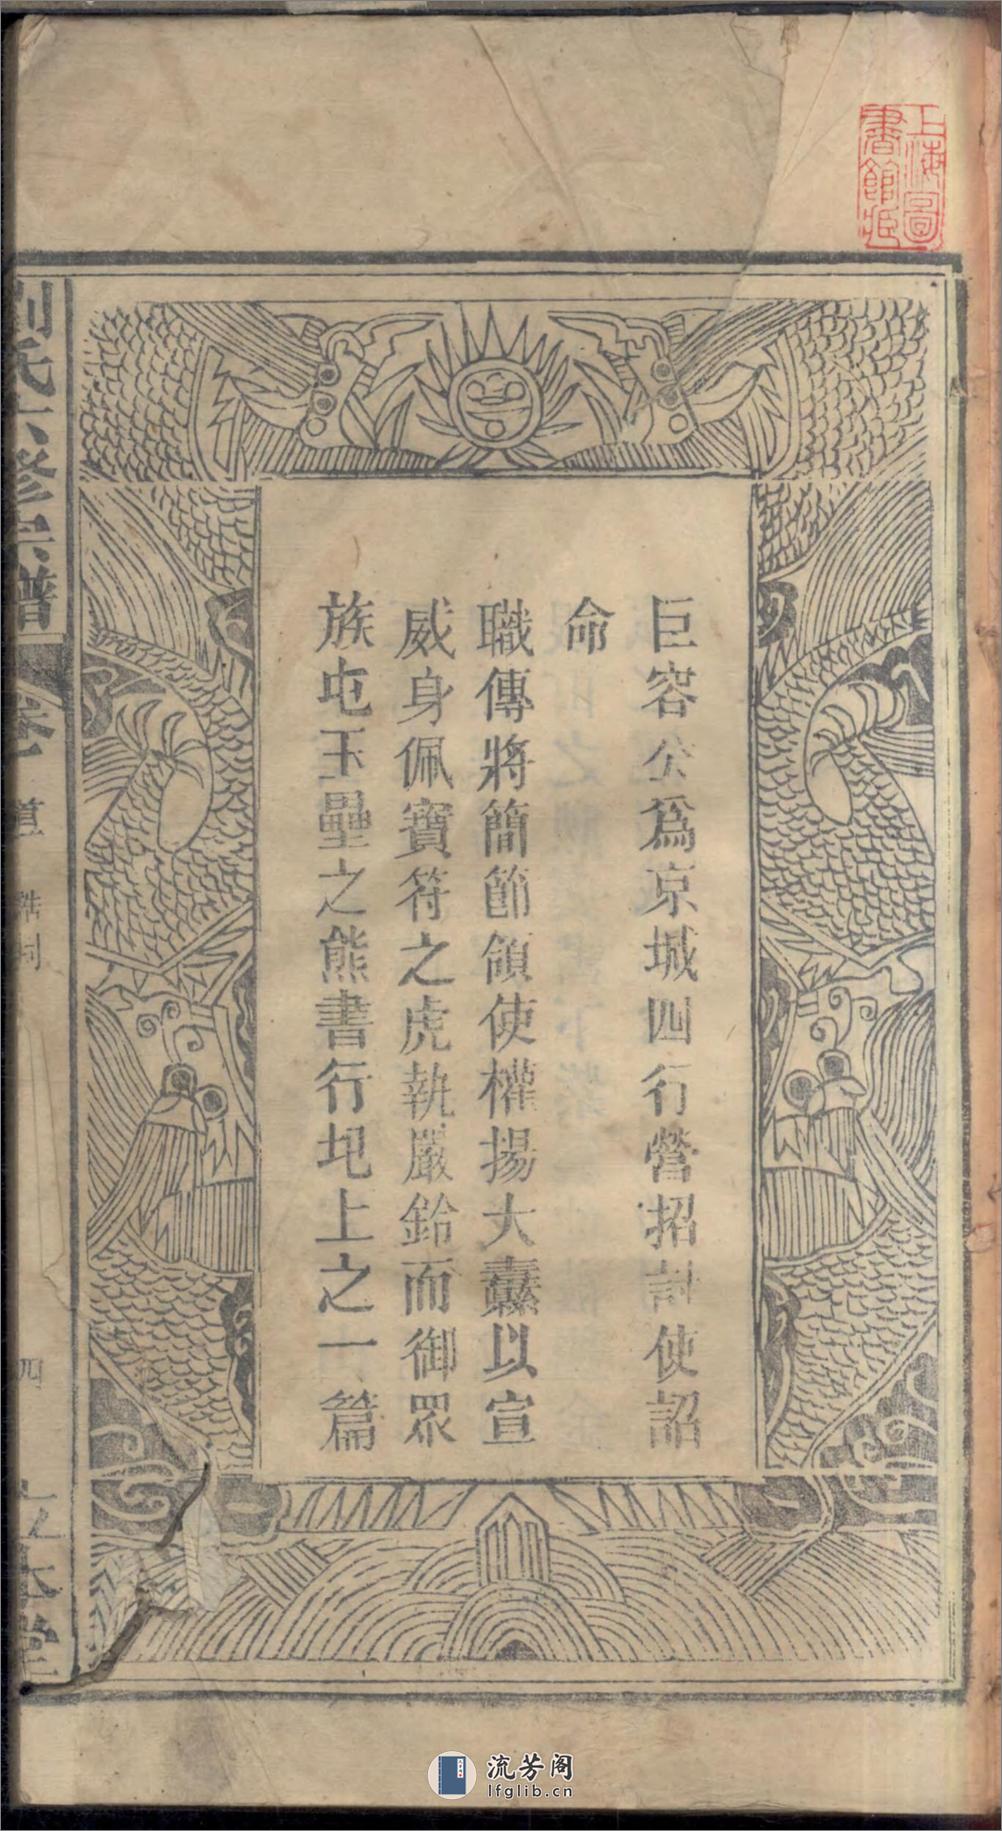 巨容公爲京城四行營招討使詔
命
職傳將簡節領使權揚大纛以宣
威身佩寶符之虎執嚴鈴而御眾
族屯玉壘之熊書行圯上之一篇
劉氏六修宗譜
卷
誥詞
四
上海圖
書館藏
流芳阁
lfglib.cn